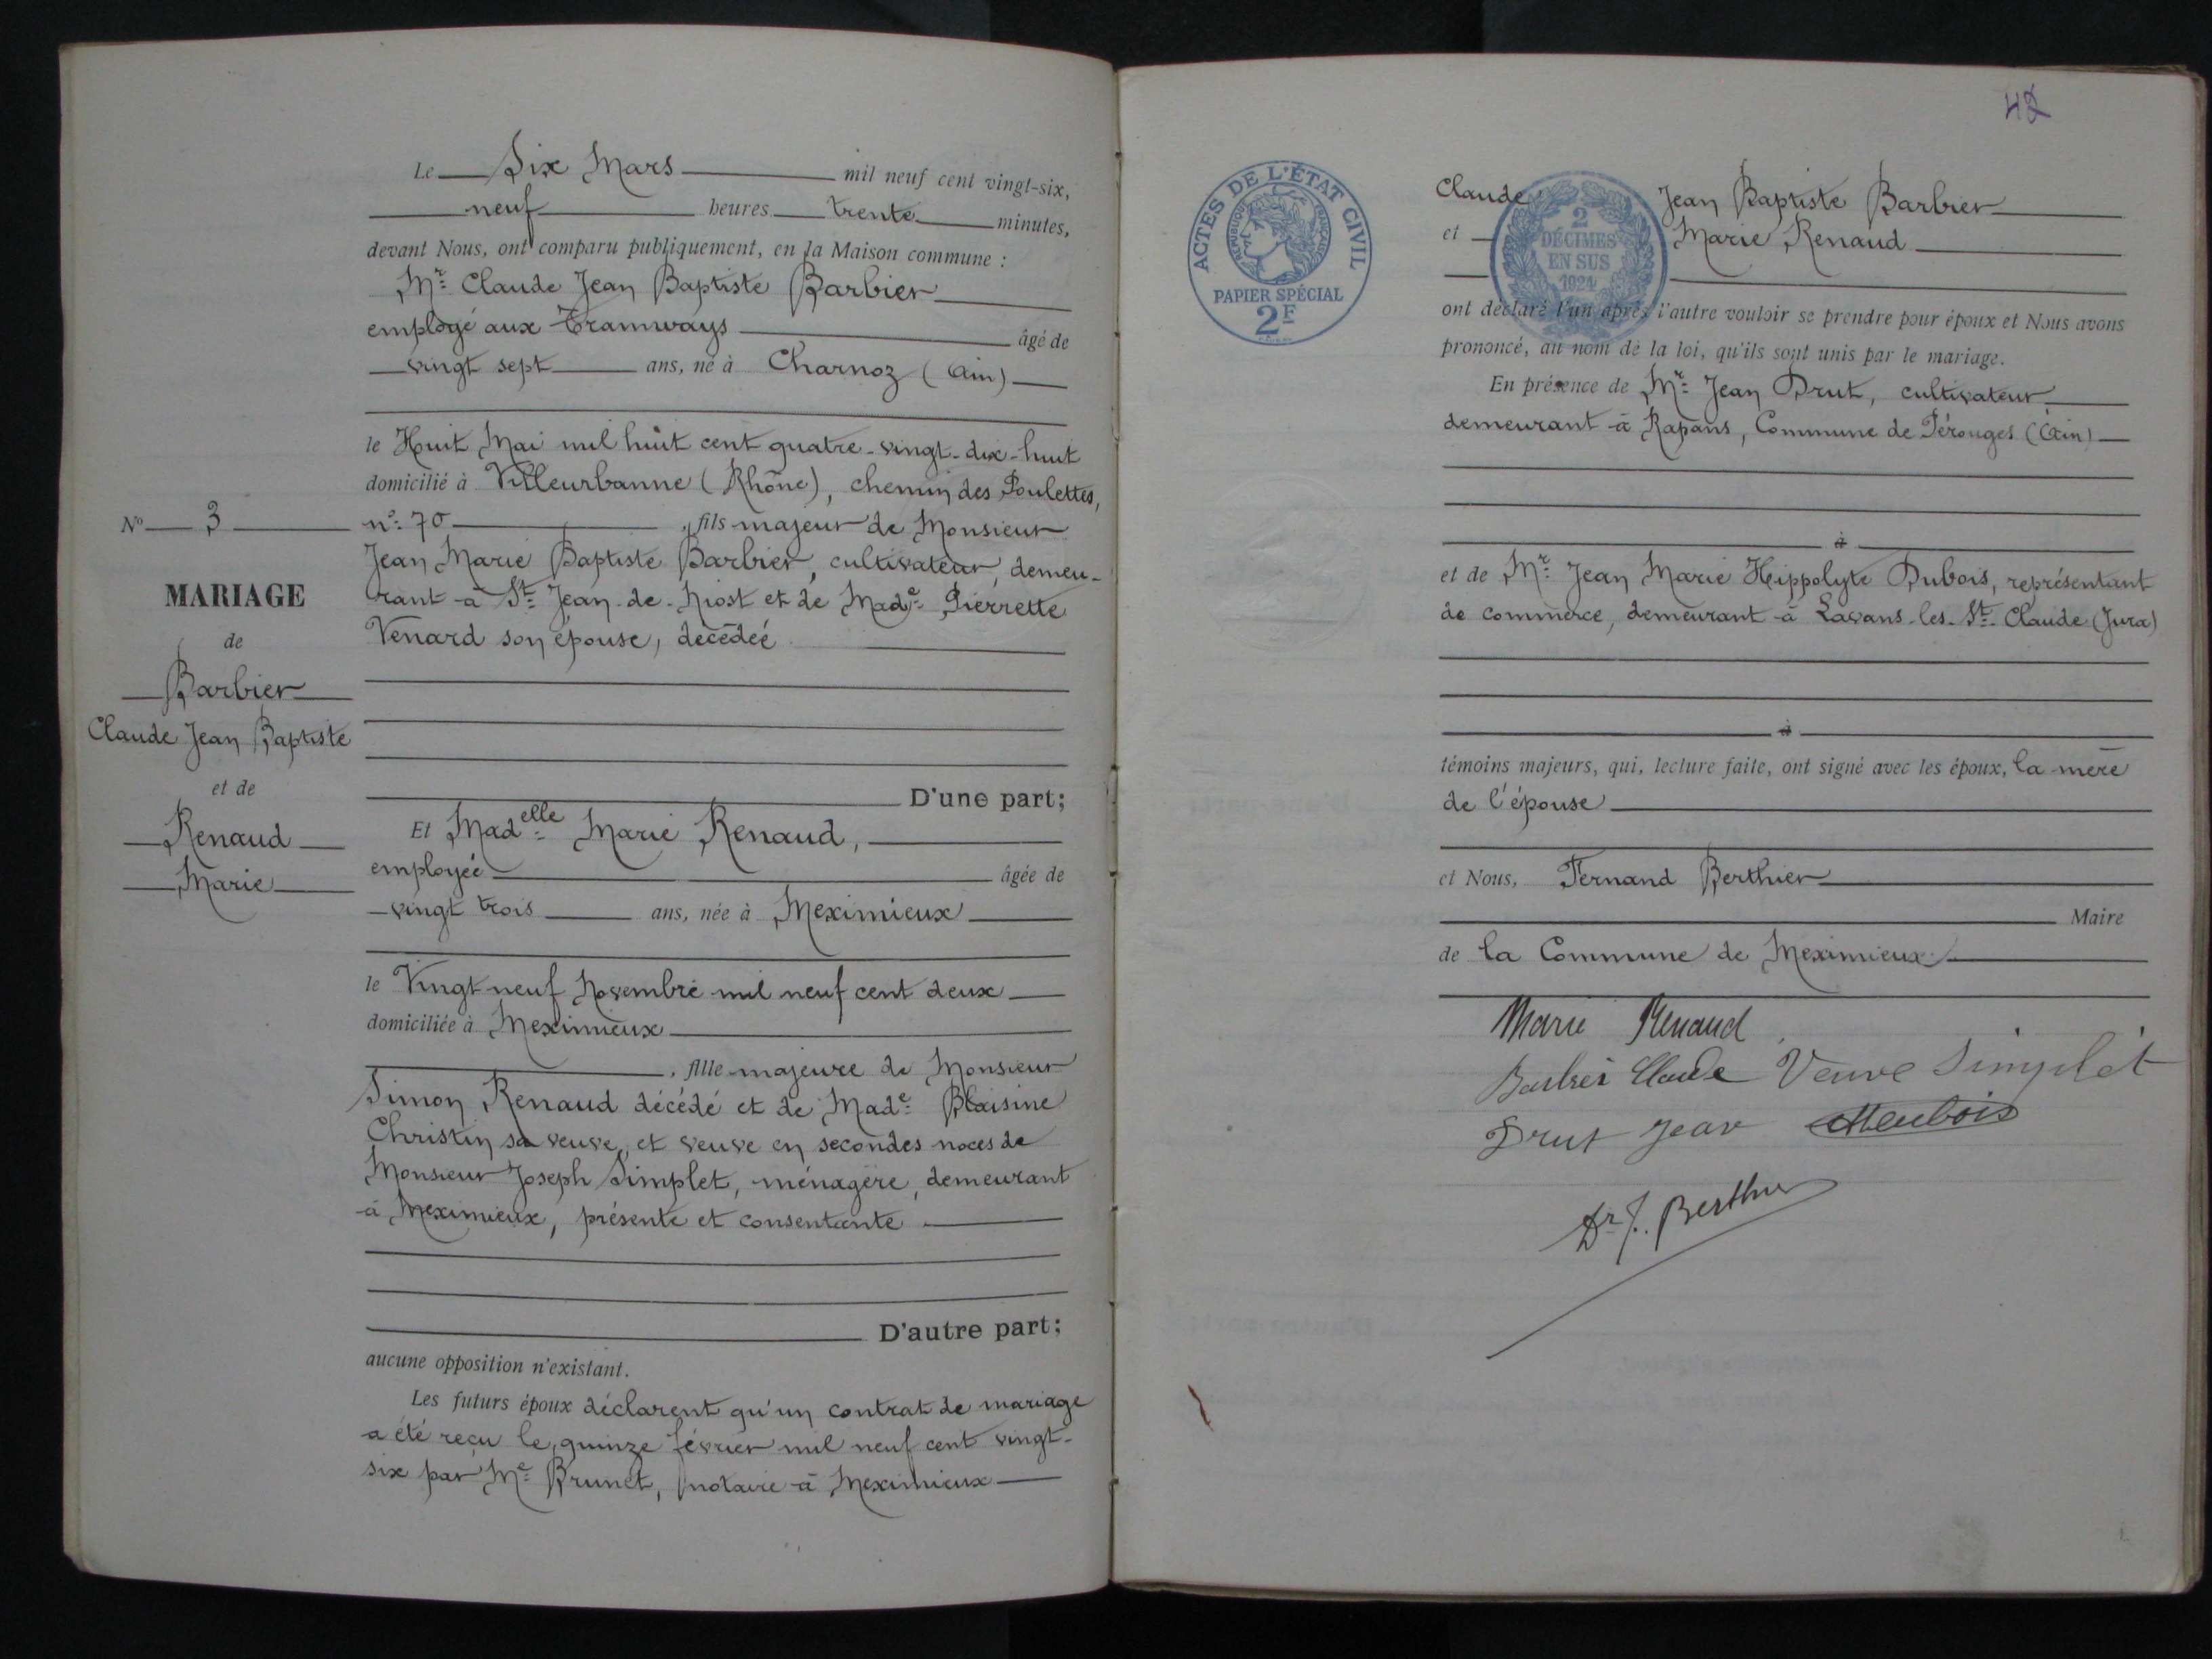 Le Six Mars mil neuf cent vingt-six,
neuf heures trente minutes,
devant Nous, ont comparu publiquement, en la Maison commune :
Mr Claude Jean Baptiste Barbier
employé aux Tramways âgé de
vingt sept ans, né à Charnoz (Ain)
le Huit Mai mil huit cent quatre-vingt-dix-huit
domicilié à Villeurbanne (Rhône), chemin des Poulettes,
n° 70, fils majeur de Monsieur
Jean Marie Baptiste Barbier, cultivateur, demeu-
rant à St Jean-de-Niost et de Made Pierrette
Venard son épouse, décédée
D'une part;
Et Madelle Marie Renaud,
employée âgée de
vingt trois ans, née à Meximieux
le Vingt neuf Novembre mil neuf cent deux
domiciliée à Meximieux
, fille majeure de Monsieur
Simon Renaud décédé et de Made Blaisine
Christin sa veuve, et veuve en secondes noces de
Monsieur Joseph Simplet, ménagère, demeurant
à Meximieux, présente et consentante
D'autre part;
aucune opposition n'existant.
Les futurs époux déclarent qu'un contrat de mariage
a été reçu le quinze février mil neuf cent vingt-
six par Me Brunet, notaire à Meximieux
N° 3
MARIAGE
de
Barbier
Claude Jean Baptiste
et de
Renaud
Marie
42
ACTES DE L'ÉTAT CIVIL
RÉPUBLIQUE FRANÇAISE
PAPIER SPÉCIAL
2F
2
DÉCIMES
EN SUS
1924
Claude Jean Baptiste Barbier
et Marie Renaud
ont déclaré l'un après l'autre vouloir se prendre pour époux et Nous avons
prononcé, au nom de la loi, qu'ils sont unis par le mariage.
En présence de Mr Jean Drut, cultivateur
demeurant à Rapans, Commune de Pérouges (Ain)
à
et de Mr Jean Marie Hippolyte Dubois, représentant
de commerce, demeurant à Lavans-les-St-Claude (Jura)
à
témoins majeurs, qui, lecture faite, ont signé avec les époux, la mère
de l'épouse
et Nous, Fernand Berthier
Maire
de la Commune de Meximieux
Marie Renaud
Barbier Claude Veuve Simplet
Drut Jean
Dr F. Berthier